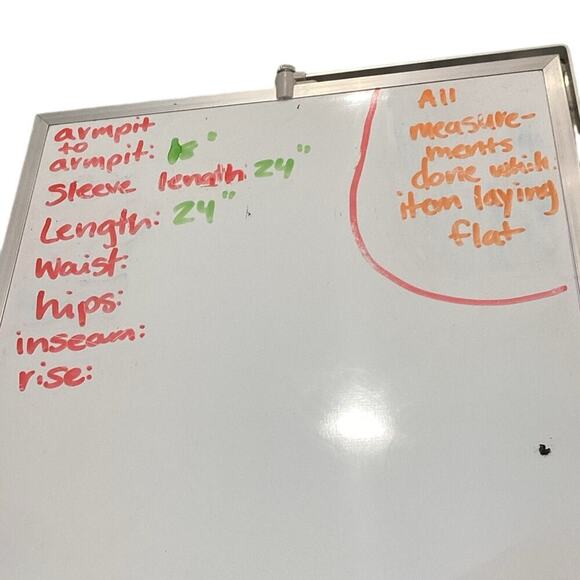 armpit
to
armpit:
Sleeve length: 24"
Length: 24"
Waist:
hips:
inseam:
rise:
All
measure-
ments
done while
item laying
flat